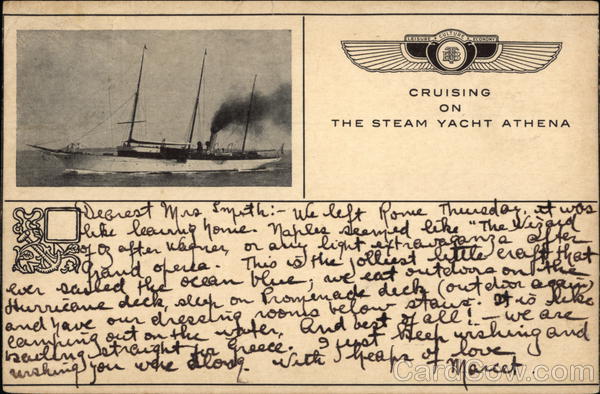 LEISURE CULTURE ECONOMY
CRUISING
ON
THE STEAM YACHT ATHENA
Dearest Mrs. Smyth:- We left Rome Thursday, it was
like leaving home. Naples seemed like "The Wizard
of Oz after Wagner, or any light extravaganza after
Grand opera. This is the jolliest little craft that
ever sailed the ocean blue; we eat outdoors on the
Hurricane deck, sleep on Promenade deck (outdoor again)
and have our dressing rooms below stairs. It is like
camping out on the water, And best of all! - we are
sailing straight for Greece. I just keep wishing and
wishing you were along. With heaps of love
Marcet.
CardCow.com